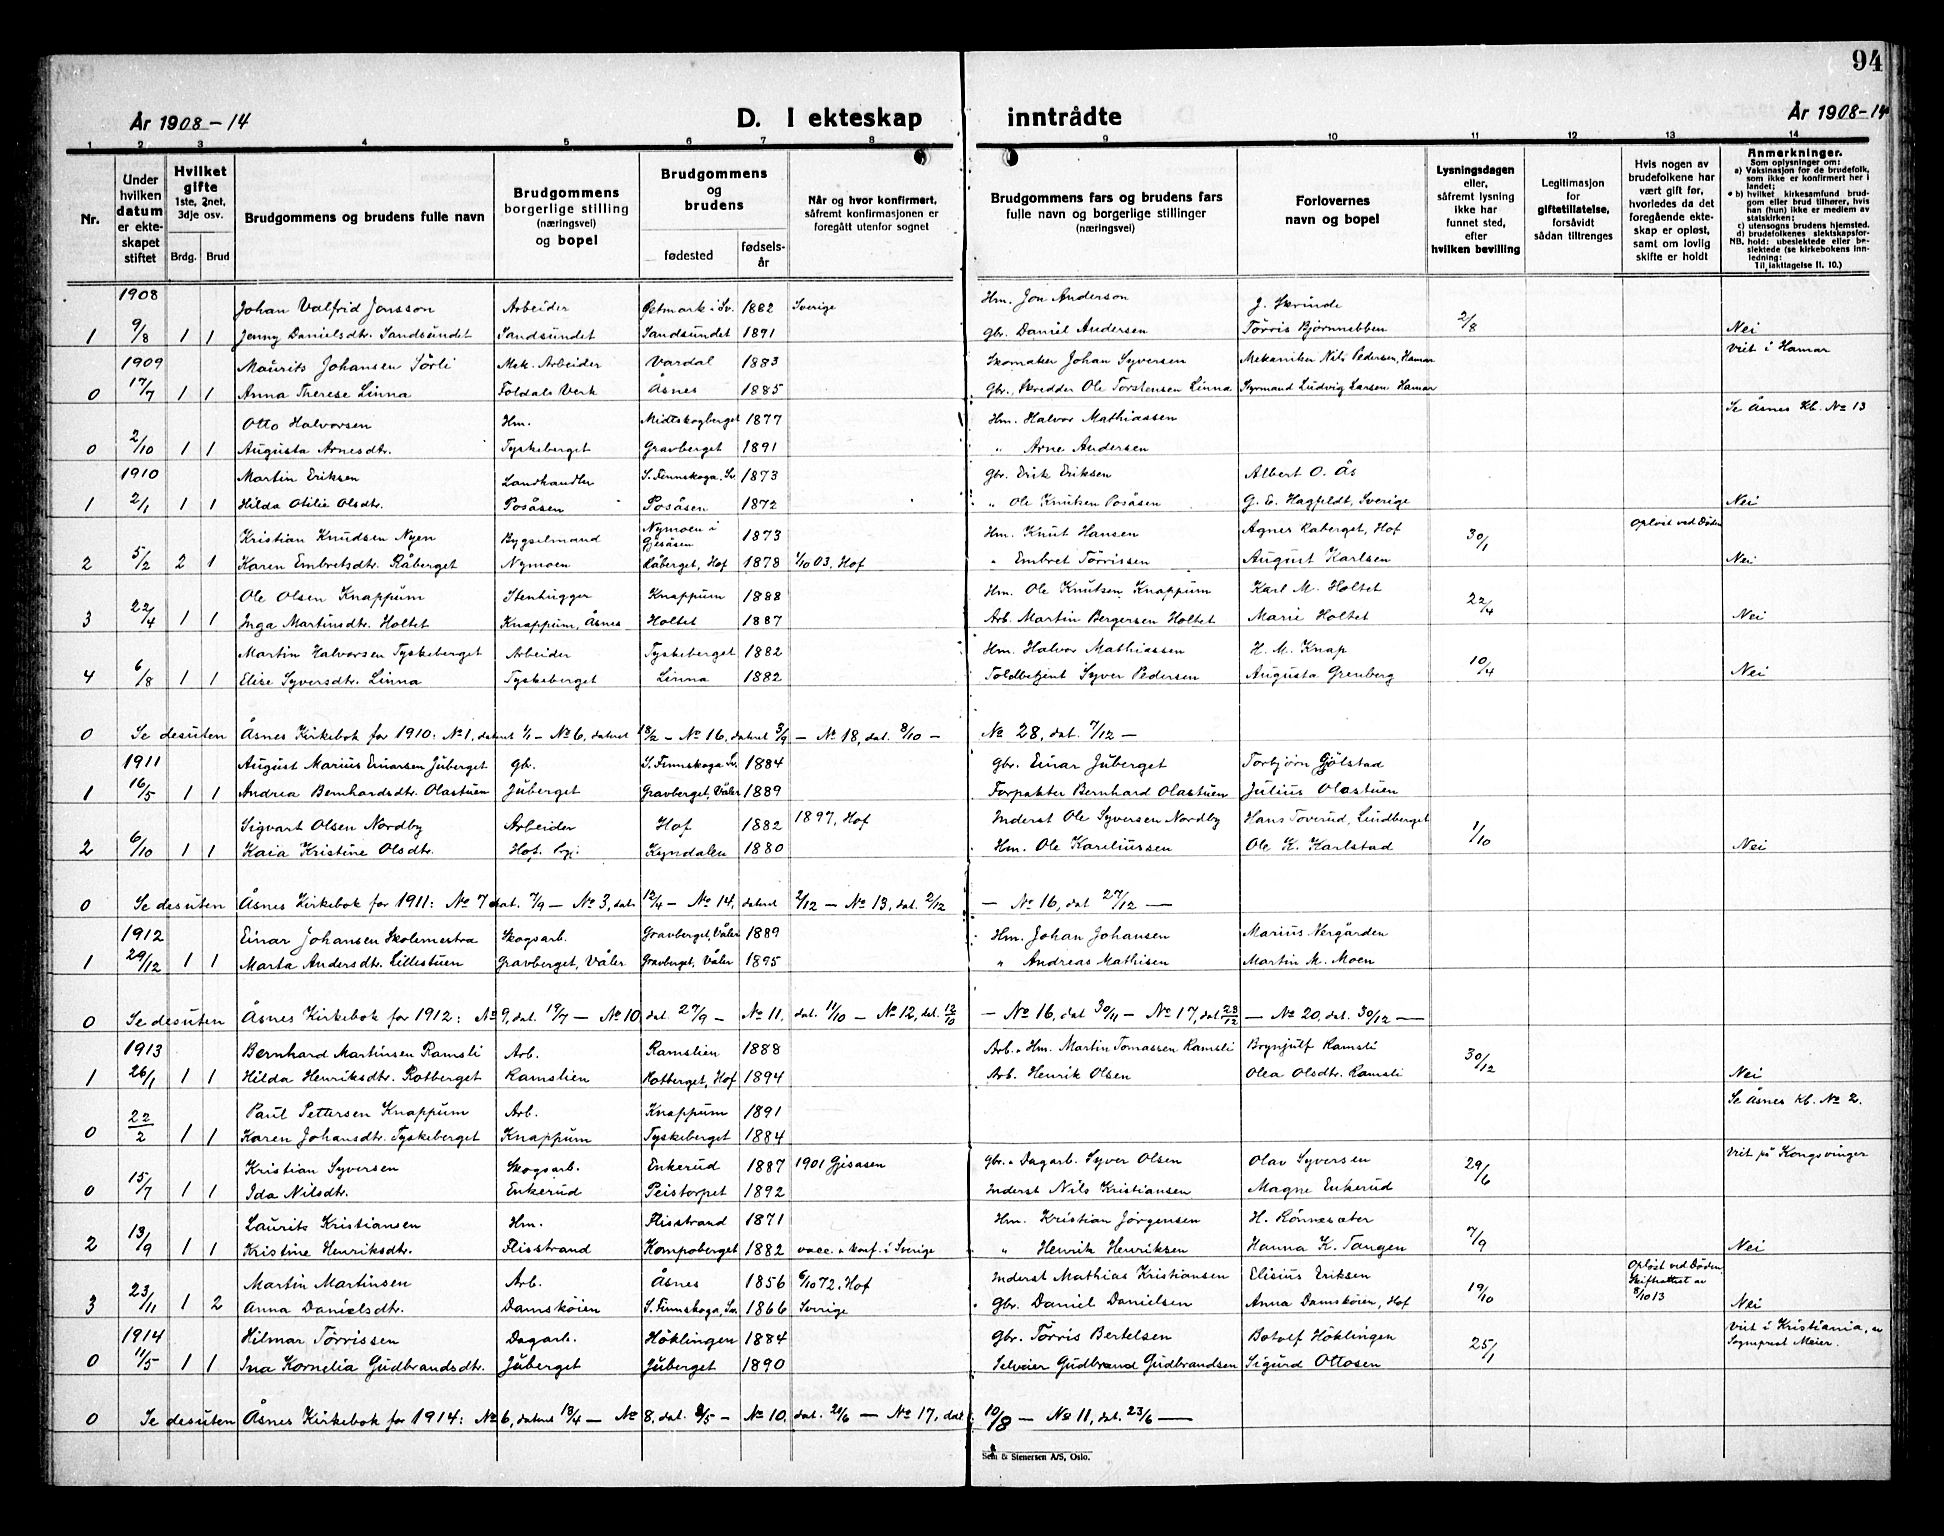 94
År 1908-14
D. I ekteskap inntrådte
År 1908-14
1 2 3 4 5 6 7 8 9 10 11 12 13 14
Nr.
Under hvilken datum er ekteskapet stiftet
Hvilket gifte 1ste, 2net, 3dje osv.
Brdg. Brud
Brudgommens og brudens fulle navn
Brudgommens borgerlige stilling (næringsvei) og bopel
Brudgommens og brudens
fødested
fødselsår
Når og hvor konfirmert, såfremt konfirmasjonen er foregått utenfor sognet
Brudgommens fars og brudens fars fulle navn og borgerlige stillinger (næringsvei)
Forlovernes navn og bopel
Lysningsdagen eller, såfremt lysning ikke har funnet sted, efter hvilken bevilling
Legitimasjon for giftetillatelse, forsåvidt sådan tiltrenges
Hvis nogen av brudefolkene har vært gift før, hvorledes da det foregående ekteskap er opløst, samt om lovlig skifte er holdt
Anmerkninger.
Som oplysninger om:
a) Vaksinasjon for de brudefolk, som ikke er konfirmert her i landet;
b) hvilket kirkesamfund brudgom eller brud tilhører, hvis han (hun) ikke er medlem av statskirken;
c) utensogns brudens hjemsted.
d) brudefolkenes slektskapsforhold: ubeslektede eller beslektede (se kirkebokens innledning:
NB.
Til iakttagelse II. 10.)
1908
Johan Valfrid Jonsson Arbeider Petmark i Sv. 1882 Sverige Hm. Jon Anderson J. Skrinde
1 9/8 1 1 Jenny Danielsdtr. Sandsundet Sandsundet Sandsundet 1891 gbr. Daniel Andersen Törris Björnnebben 2/8 Nei
1909 Mauritz Johansen Sörli Mek. Arbeider Vardal 1883 Skomaker Johan Syversen Mekaniker Nils Pedersen, Hamar Viet i Hamar
0 17/7 1 1 Anna Therese Linna Foldals Verk Åsnes 1885 Gbr. Skredder Ole Torstensen Linna Styrmand Ludvig Larsen Hamar
Otto Halvorsen Hm. Midtskogberget 1877 Hm. Halvor Mathiassen Se Åsnes Kb. No 13
0 2/10 1 1 Augusta Arnesdtr. Tyskeberget Gravberget 1891 " Arne Andersen
1910 Martin Eriksen Landhandler S. Finnskoga. Sv 1873 Gbr. Erik Eriksen Albert O. Ås
1 2/1 1 1 Hilda Otilie Olsdtr. Posåsen Posåsen 1872 " Ole Knutsen Posåsen G. E. Hagfeldt, Sverige Nei
Kristian Knudsen Nyen Bygselmand Nymoen i Gjesåsen 1873 Hm. Knut Hansen Agnes Raberget, Hof 30/1 Opløst ved Døden
2 5/2 2 1 Karen Embretsdtr. Råberget Nymoen Råberget, Hof 1878 1/10 03, Hof " Embret Törrissen August Karlsen Nei
Ole Olsen Knappum Stenhugger Knappum 1888 Hm. Ole Knutsen Knappum Karl M. Holtet
3 22/4 1 1 Inga Martinsdtr. Holtet Knappum, Åsnes Holtet 1887 Arb. Martin Bergersen Holtet Marie Holtet 22/4 Nei
Martin Halvorsen Tyskeberget Arbeider Tyskeberget 1882 Hm. Halvor Mathiassen H. M. Knap
4 6/8 1 1 Elise Syversdtr. Linna Tyskeberget Linna 1882 Toldbetjent Syver Pedersen Augusta Grenberg 10/4 Nei
0 Se desuten Åsnes Kirkebok for 1910: No 1, datert 1/1 - No 6, datert 13/2 - No 16, datert 3/9 - No 18, dat. 8/10 - No 28, dat. 7/12 -
1911 August Marius Einarsen Juberget gb. S. Finnskoga Sv. 1884 Gbr. Einar Juberget Torbjørn Gjölstad
1 16/5 1 1 Andrea Bernhardsdtr. Olastuen Juberget Gravberget, Våler 1889 Forpakter Bernhard Olastuen Julius Olastuen
Sigvart Olsen Nordby Arbeider Hof 1882 1897, Hof Inderst Ole Syversen Nordby Hans Toverud, Lindberget
2 6/10 1 1 Kaia Kristine Olsdtr. Hof. Pgj. Kyndalen 1880 Hm. Ole Kareliussen Ole K. Karlstad 1/10 Nei
0 Se desuten Åsnes Kirkebok for 1911: No 7 dat. 7/9 - No 3, dat. 12/4 - No 14, datert 2/12 - No 13, dat. 2/12 - No 16, dat 27/12 -
1912 Einar Johansen Skolemestra Skogsarb. Gravberget, Våler 1889 Hm. Johan Johansen Marius Nergården
1 29/12 1 1 Marta Andersdtr. Lillestuen Gravberget, Våler Gravberget, Våler 1895 " Andreas Mathisen Martin M. Moen
0 Se desuten Åsnes Kirkebok for 1912: No 9, dat. 19/7 - No 10, dat 27/9 - No 11, dat. 11/10 - No 12, dat. 12/10 - No 16, dat 30/11 - No 17, dat 23/12 - No 20, dat. 30/12 -
1913 Bernhard Martinsen Ramsli Arb. Ramslien 1888 Arb. & Hm. Martin Tomassen Ramsli Brynjulf Ramsli
1 26/1 1 1 Hilda Henriksdtr. Rotberget Ramslien Rotberget, Hof 1894 Arb. Henrik Olsen Olea Olsdtr. Ramsli 30/12 Nei
Paul Pettersen Knappum Arb. Knappum 1891 Se Åsnes kb. No 2.
0 22/2 1 1 Karen Johansdtr. Tyskeberget Knappum Tyskeberget 1884
Kristian Syversen Skogsarb. Enkerud 1887 1901 Gjesåsen gbr. & Dagarb. Syver Olsen Olav Syversen Viet på Kongsvinger
0 15/7 1 1 Ida Nilsdtr. Enkerud Peistorpet 1892 Inderst Nils Kristiansen Magne Enkerud 29/6
Laurits Kristiansen Hm. Flisstrand 1871 Hm. Kristian Jörgensen H. Rönnesæter
2 13/9 1 1 Kristine Henriksdtr. Flisstrand Kompoberget 1882 vacc. & konf. i Sverige " Henrik Henriksen Hanna K. Tangen 7/9 Nei
Martin Martinsen Arb. Åsnes 1856 6/10 72. Hof Inderst Mathias Kristiansen Elisius Eriksen Opløst ved Døden, Skifteattest av 8/10 13
3 23/11 1 2 Anna Danielsdtr. Damskóien S. Finnskoga, Sv. 1866 Sverige gbr. Daniel Danielsen Anna Damskóien, Hof 19/10 Nei
1914 Hilmar Törrissen Dagarb. Höklingen 1884 gbr. Törris Bertelsen Botolf Höklingen Viet i Kristiania, av Sogneprest Meier.
0 11/5 1 1 Ina Kornelia Gudbrandsdtr. Juberget Juberget 1890 Selveier Gudbrand Gudbrandsen Sigurd Ottosen 25/1
0 Se desuten Åsnes Kirkebok for 1914: No 6, datert 13/4 - No 8, dat. 2/5 - No 10, dat. 21/6 - No 17, dat. 10/8 - No 11, dat. 23/6 -
Sem & Stenersen A/S, Oslo.